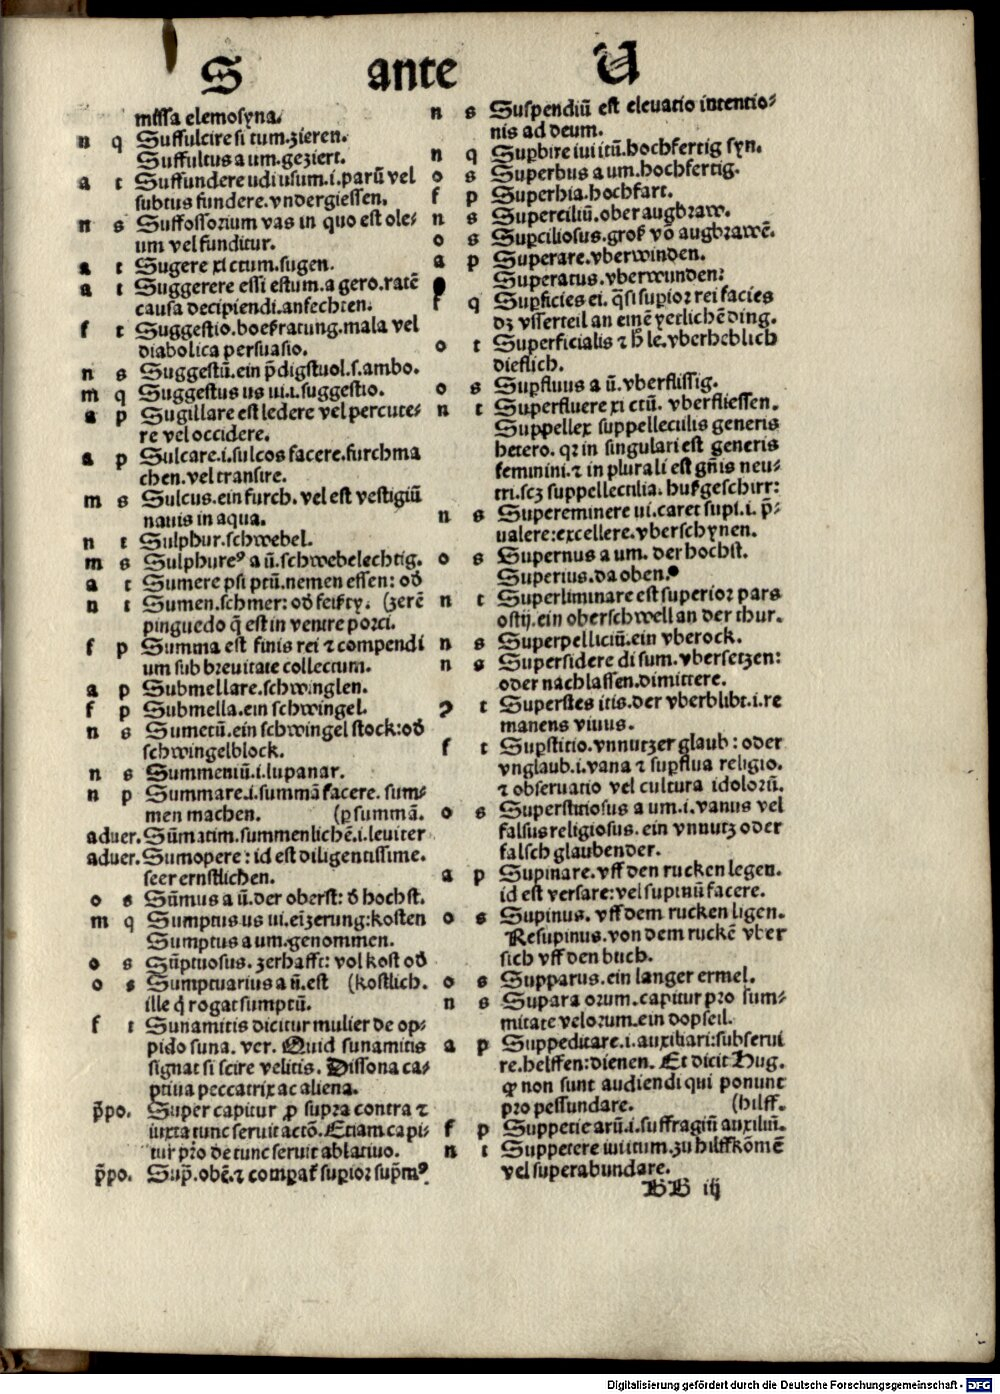 S ante U
missa elemosyna.
n q Suffulcire si tum.zieren.
Suffultus a um.geziert.
a t Suffundere udi usum.i.parū vel
subtus fundere.vndergiessen.
n s Suffossorium vas in quo est ole⸗
um vel funditur.
a t Sugere xi ctum.sugen.
a t Suggerere essi estum.a gero.ratē
causa decipiendi.anfechten.
f t Suggestio.boeßratung.mala vel
diabolica persuasio.
n s Suggestū.ein p̄digstuol.s.ambo.
m q Suggestus us ui.i.suggestio.
a p Sugillare est ledere vel percute⸗
re vel occidere.
a p Sulcare.i.sulcos facere.furchma
chen.vel transire.
m s Sulcus.ein furch. vel est vestigiū
nauis in aqua.
n t Sulphur.schwebel.
m s Sulphureꝰ a ū.schwebelechtig.
a t Sumere psi ptū.nemen essen: od̄
n t Sumen.schmer: od̄ feißty. (zerē
pinguedo q̄ est in ventre porci.
f p Summa est finis rei ⁊ compendi
um sub breuitate collectum.
a p Submellare.schwinglen.
f p Submella.ein schwingel.
n s Sumetū.ein schwingel stock:od̄
schwingelblock.
n s Summeniū.i.lupanar.
n p Summare.i.summā facere. sum⸗
men machen. (ꝑ summā.
aduer. Sūmatim.summenlichē.i.leuiter
aduer. Sumopere: id est diligentissime.
seer ernstlichen.
o s Sūmus a ū.der oberst: d̄ hochst.
m q Sumptus us ui.eīzerung:kosten
Sumptus a um.genommen.
o s Sūptuosus. zerhafft: vol kost od̄
o s Sumptuarius a ū.est (kostlich.
ille q̄ rogat sumptū.
f t Sunamitis dicitur mulier de op⸗
pido suna. ver. Quid sunamitis
signat si scire velitis. Dissona ca⸗
ptiua peccatrix ac aliena.
p̄po. Super capitur ꝓ supra contra ⁊
iuxta tunc seruit actō. Etiam capi⸗
tur pro de tunc seruit ablatiuo.
p̄po. Suꝑ.obē.⁊ comꝑat᷒ suꝑior sup̄mꝰ
n s Suspendiū est eleuatio intentio⸗
nis ad deum.
n q Suꝑbire iui itū.hochfertig syn.
o s Superbus a um.hochfertig.
f p Superbia.hochfart.
n s Superciliū.ober augbraw.
o s Suꝑciliosus.groß vō augbrawē.
a p Superare.vberwinden.
Superatus.vberwunden:
f q Suꝑficies ei. q̄si suꝑior rei facies
dz vsserteil an einē yetlichē ding.
o t Superficialis ⁊ h̄ le.vberheblich
dieflich.
o s Suꝑfluus a ū.vberflissig.
n t Superfluere xi ctū. vberfliessen.
Suppellex suppellectilis generis
hetero. qꝛ in singulari est generis
feminini.⁊ in plurali est gn̄is neu⸗
tri.scz suppellectilia. hußgeschirr:
n s Supereminere ui.caret supi.i. p̄⸗
ualere:excellere.vberschynen.
o s Supernus a um. der hochst.
Superius.da oben.
n t Superliminare est superior pars
ostij.ein oberschwell an der thur.
n s Superpelliciū.ein vberock.
n s Supersidere di sum.vbersetzen:
oder nachlassen.dimittere.
ꝯ t Superstes itis.der vberblibt.i.re
manens viuus.
f t Suꝑstitio.vnnutzer glaub : oder
vnglaub.i.vana ⁊ suꝑflua religio.
⁊ obseruatio vel cultura idolorū.
o s Superstitiosus a um.i.vanus vel
falsus religiosus. ein vnnutz oder
falsch glaubender.
a p Supinare.vff den rucken legen.
id est versare:vel supinū facere.
o s Supinus. vff dem rucken ligen.
Resupinus.von dem ruckē vber
sich vff den buch.
o s Supparus.ein langer ermel.
n s Supara orum.capitur pro sum⸗
mitate velorum.ein dopseil.
a p Suppeditare.i.auxiliari:subserui
re.helffen:dienen. Et dicit Hug.
ꝙ non sunt audiendi qui ponunt
pro pessundare. (hilff.
f p Suppetie arū.i.suffragiū auxiliū.
n t Suppetere iui itum.zu hilff kōmē
vel superabundare.
BB iij
Digitalisierung gefördert durch die Deutsche Forschungsgemeinschaft - DFG